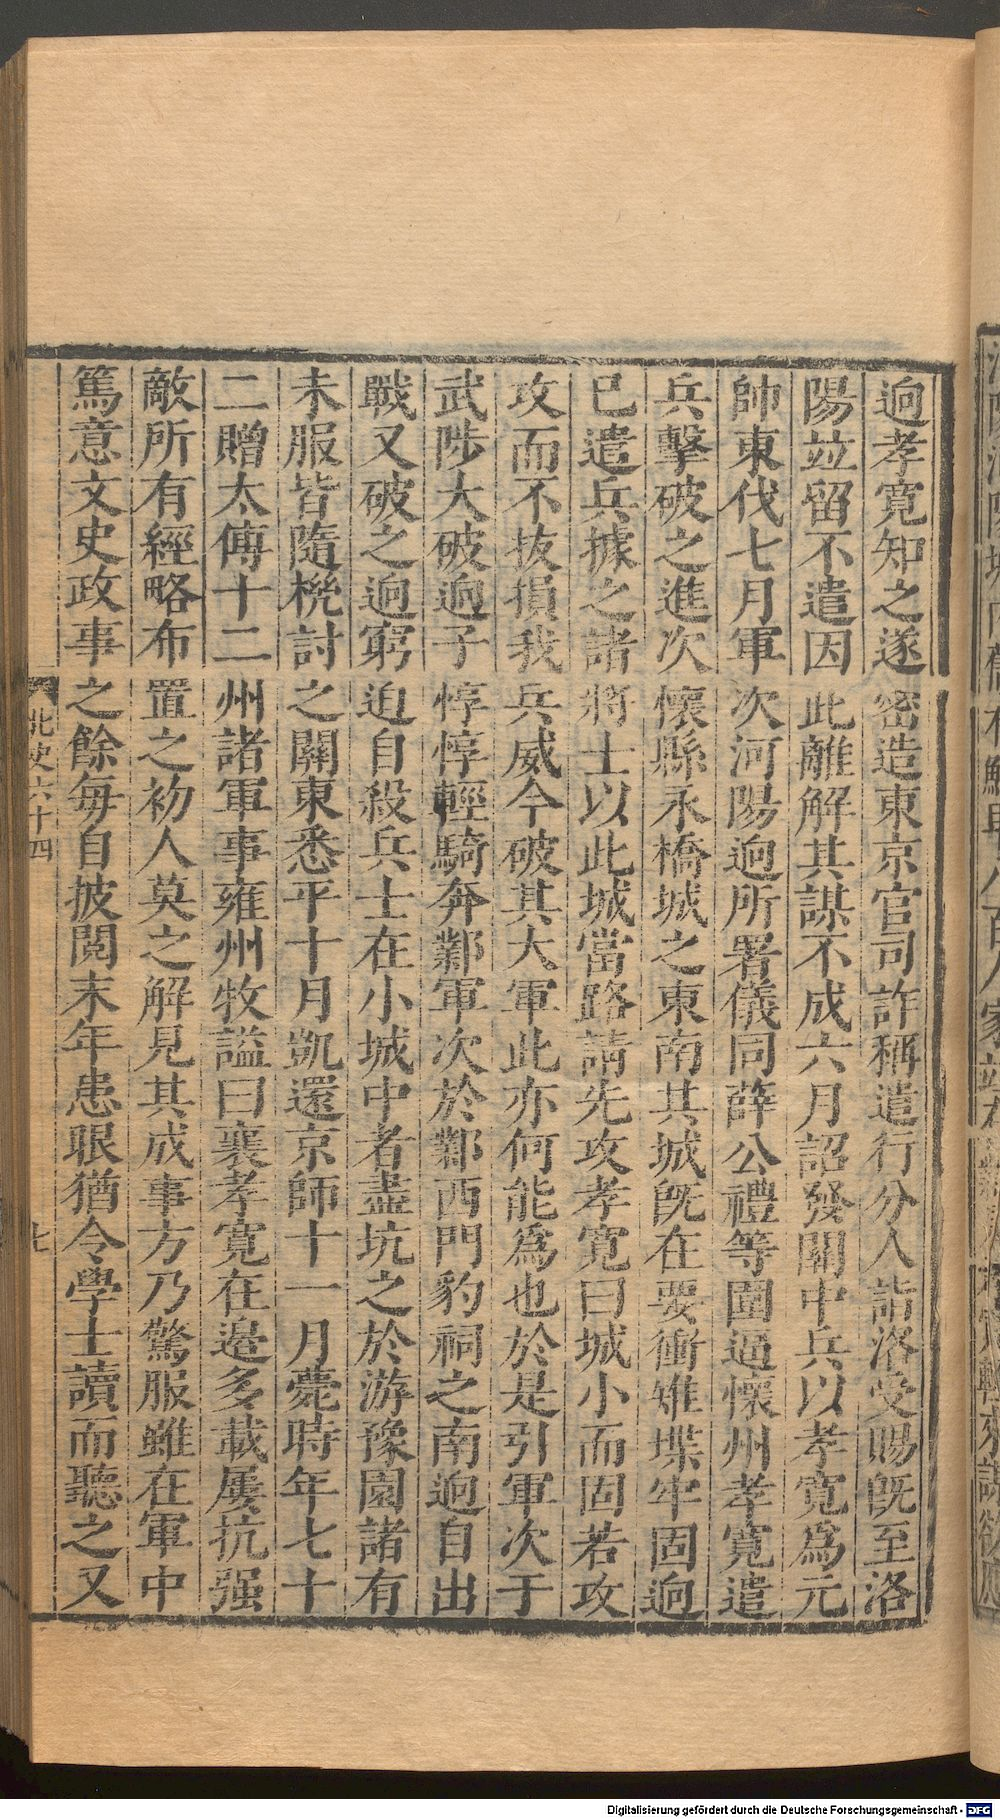 迥孝寛知之遂密造東京官司詐稱遣行分人詣洛受賜旣至洛
陽竝留不遣因此離解其謀不成六月詔發關中兵以孝寛爲元
帥東伐七月軍次河陽迥所署儀同薛公禮等圍逼懷州孝寛遣
兵擊破之進次懷縣永橋城之東南其城旣在要衝雉堞牢固迥
已遣兵據之諸將士以此城當路請先攻孝寛曰城小而固若攻
攻而不拔損我兵威今破其大軍此亦何能爲也於是引軍次于
武陟大破迥子惇惇輕騎奔鄴軍次於鄴西門豹祠之南迥自出
戰又破之迥窮迫自殺兵士在小城中者盡坑之於游豫園諸有
未服皆隨機討之關東悉平十月凱還京師十一月薨時年七十
二贈太傅十二州諸軍事雍州牧謚曰襄孝寛在邊多載屢抗强
敵所有經略布置之初人莫之解見其成事方乃驚服雖在軍中
篤意文史政事之餘每自披閱末年患眼猶令學士讀而聽之又
北史六十四
七
Digitalisierung gefördert durch die Deutsche Forschungsgemeinschaft - DFG